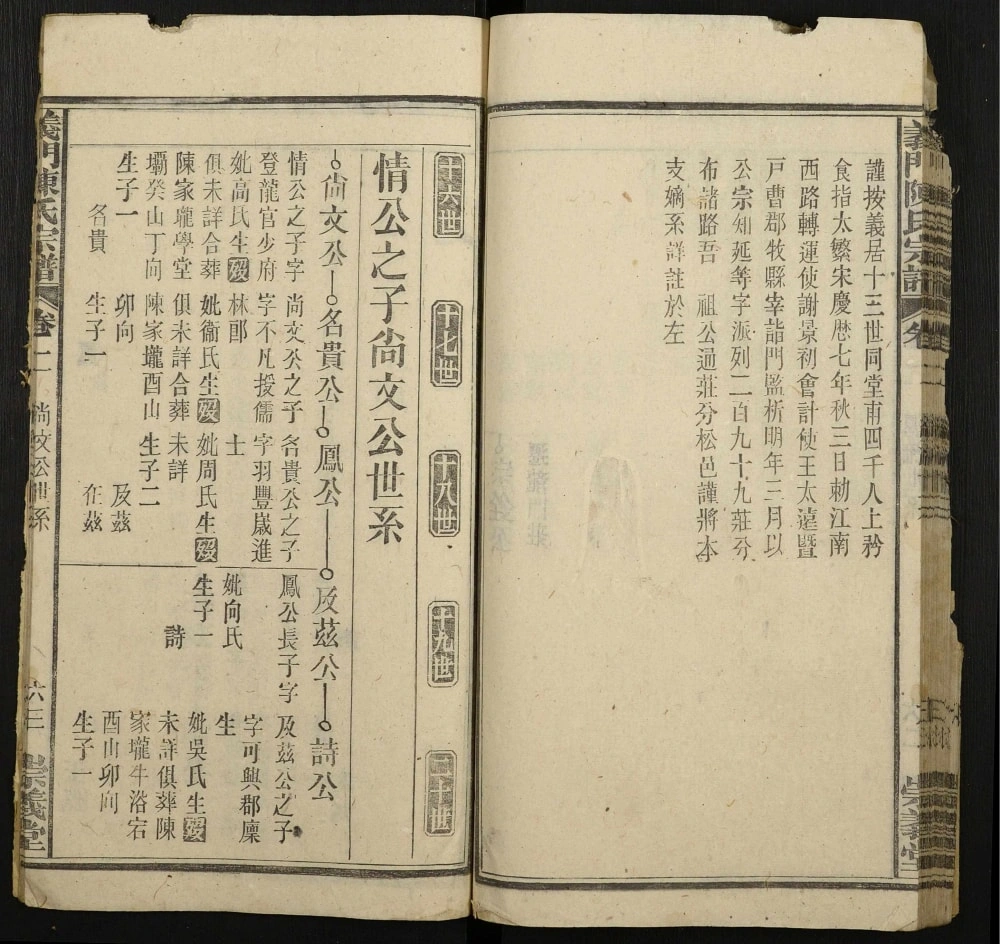 謹按義居十三世同堂甫四千人上衿
食指太繁宋慶厯七年秋三日勅江南
西路轉運使謝景初會計使王太遠曁
戸曹郡牧縣宰詣門監析明年三月以
公宗知延等字派列二百九十九莊兮
布諸路吾　祖公過莊兮松邑謹將本
支嫡系詳註於左
義門陳氏宗譜
卷二
崇義堂
十六世
十七世
十八世
十九世
二十世
情公之子尙文公世系
尙文公
名貴公
鳳公
及茲公
詩公
情公之子字
登龍官少府
妣高氏生歿
俱未詳合葬
陳家壠學堂
壩癸山丁向
生子一
名貴
尙文公之子
字不凡授儒
林郎
妣衞氏生歿
俱未詳合葬
陳家壠酉山
卯向
生子一
名貴公之子
字羽豐歲進
士
妣周氏生歿
未詳
生子二
及茲
在茲
鳳公長子字
妣向氏
生子一
詩
及茲公之子
字可興郡廩
生
妣吳氏生歿
未詳俱葬陳
家壠牛浴宕
酉山卯向
生子一
義門陳氏宗譜
卷二
尙文公世系
六三
崇義堂